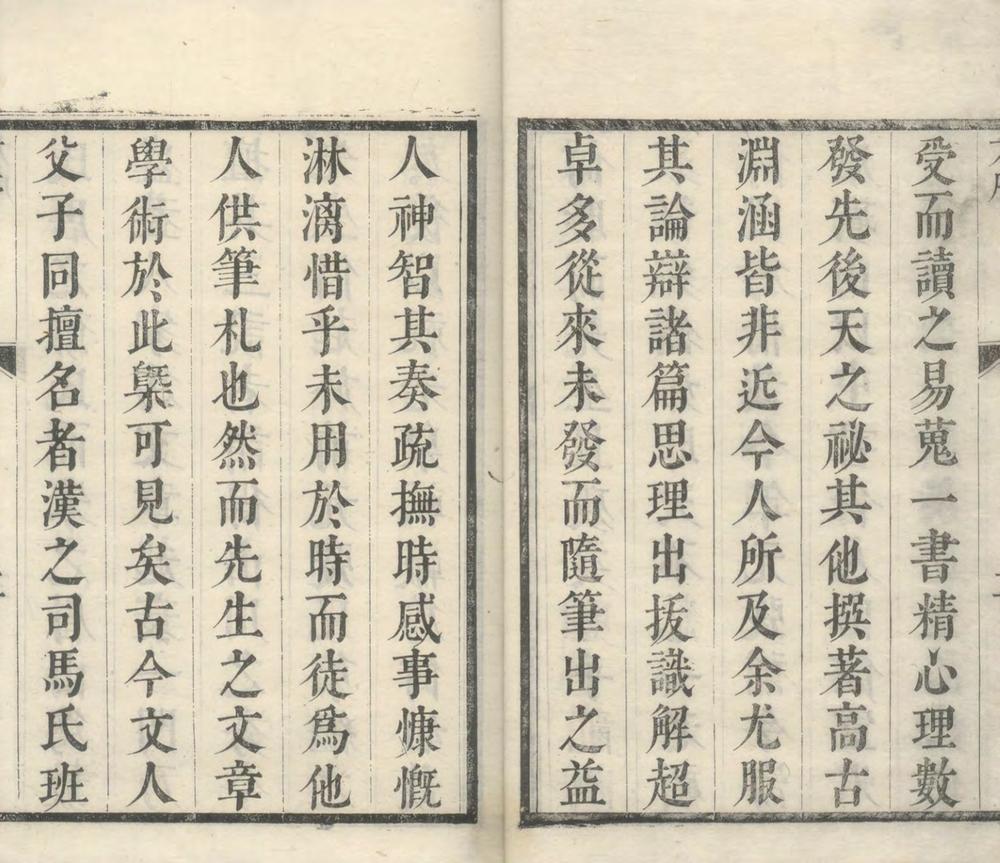 受而讀之易蒐一書精心理數
發先後天之祕其他撰著高古
淵涵皆非近今人所及余尤服
其論辯諸篇思理出拔識解超
卓多從來未發而隨筆出之益
人神智其奏疏撫時感事慷慨
淋漓惜乎未用於時而徒爲他
人供筆札也然而先生之文章
學術於此槩可見矣古今文人
父子同擅名者漢之司馬氏班